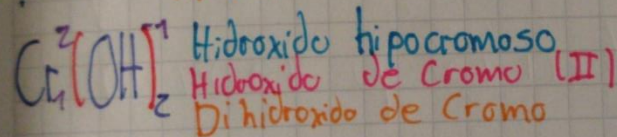 Cr₁²(OH)₂¹ Hidroxido hipocromoso
Hidroxido de Cromo (II)
Dihidroxido de Cromo